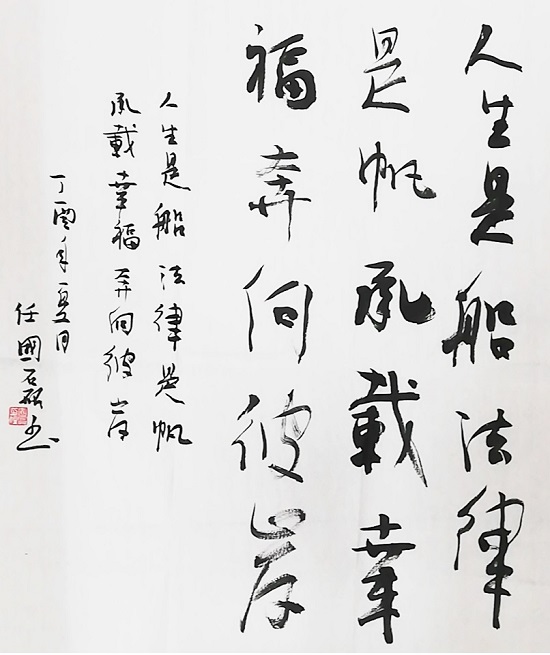 人生是船法律
是帆承載幸
福奔向彼岸
人生是船法律是帆
承載幸福奔向彼岸
丁酉年夏日
任國石孫书